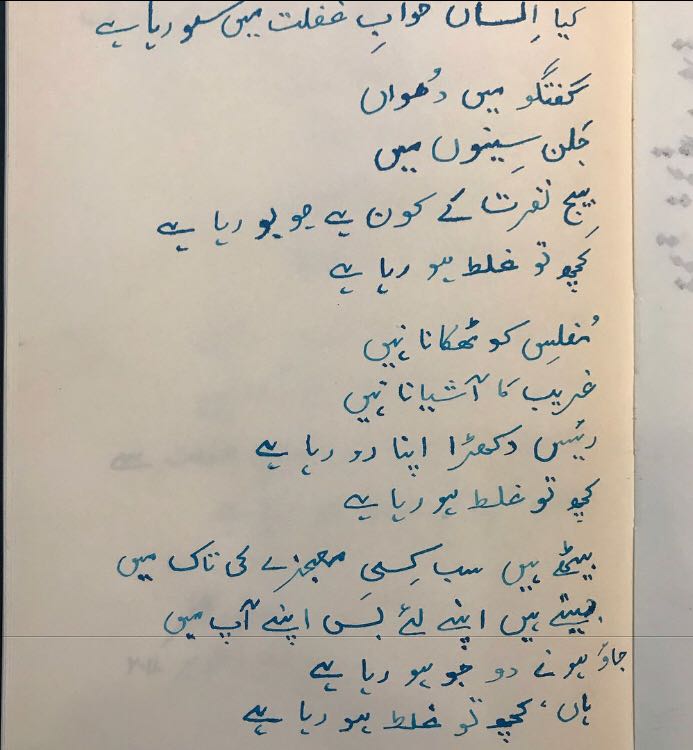 کیا اِنساں خوابِ غفلت میں سو رہا ہے
گفتگو میں دُھواں
جَلن سِینوں میں
بیج نفرت کے کون ہے جو بو رہا ہے
کِچھ تو غلط ہو رہا ہے
مُفلِس کو ٹھکانا نہیں
غریب کا آشیانا نہیں
رئیس دکھڑا اپنا رو رہا ہے
کچھ تو غلط ہو رہا ہے
بیٹھے ہیں سب کِسی معجزے کی تاک میں
جیتے ہیں اپنے لئے بَس اپنے آپ میں
جاؤ ہونے دو جو ہو رہا ہے
ہاں، کچھ تو غلط ہو رہا ہے